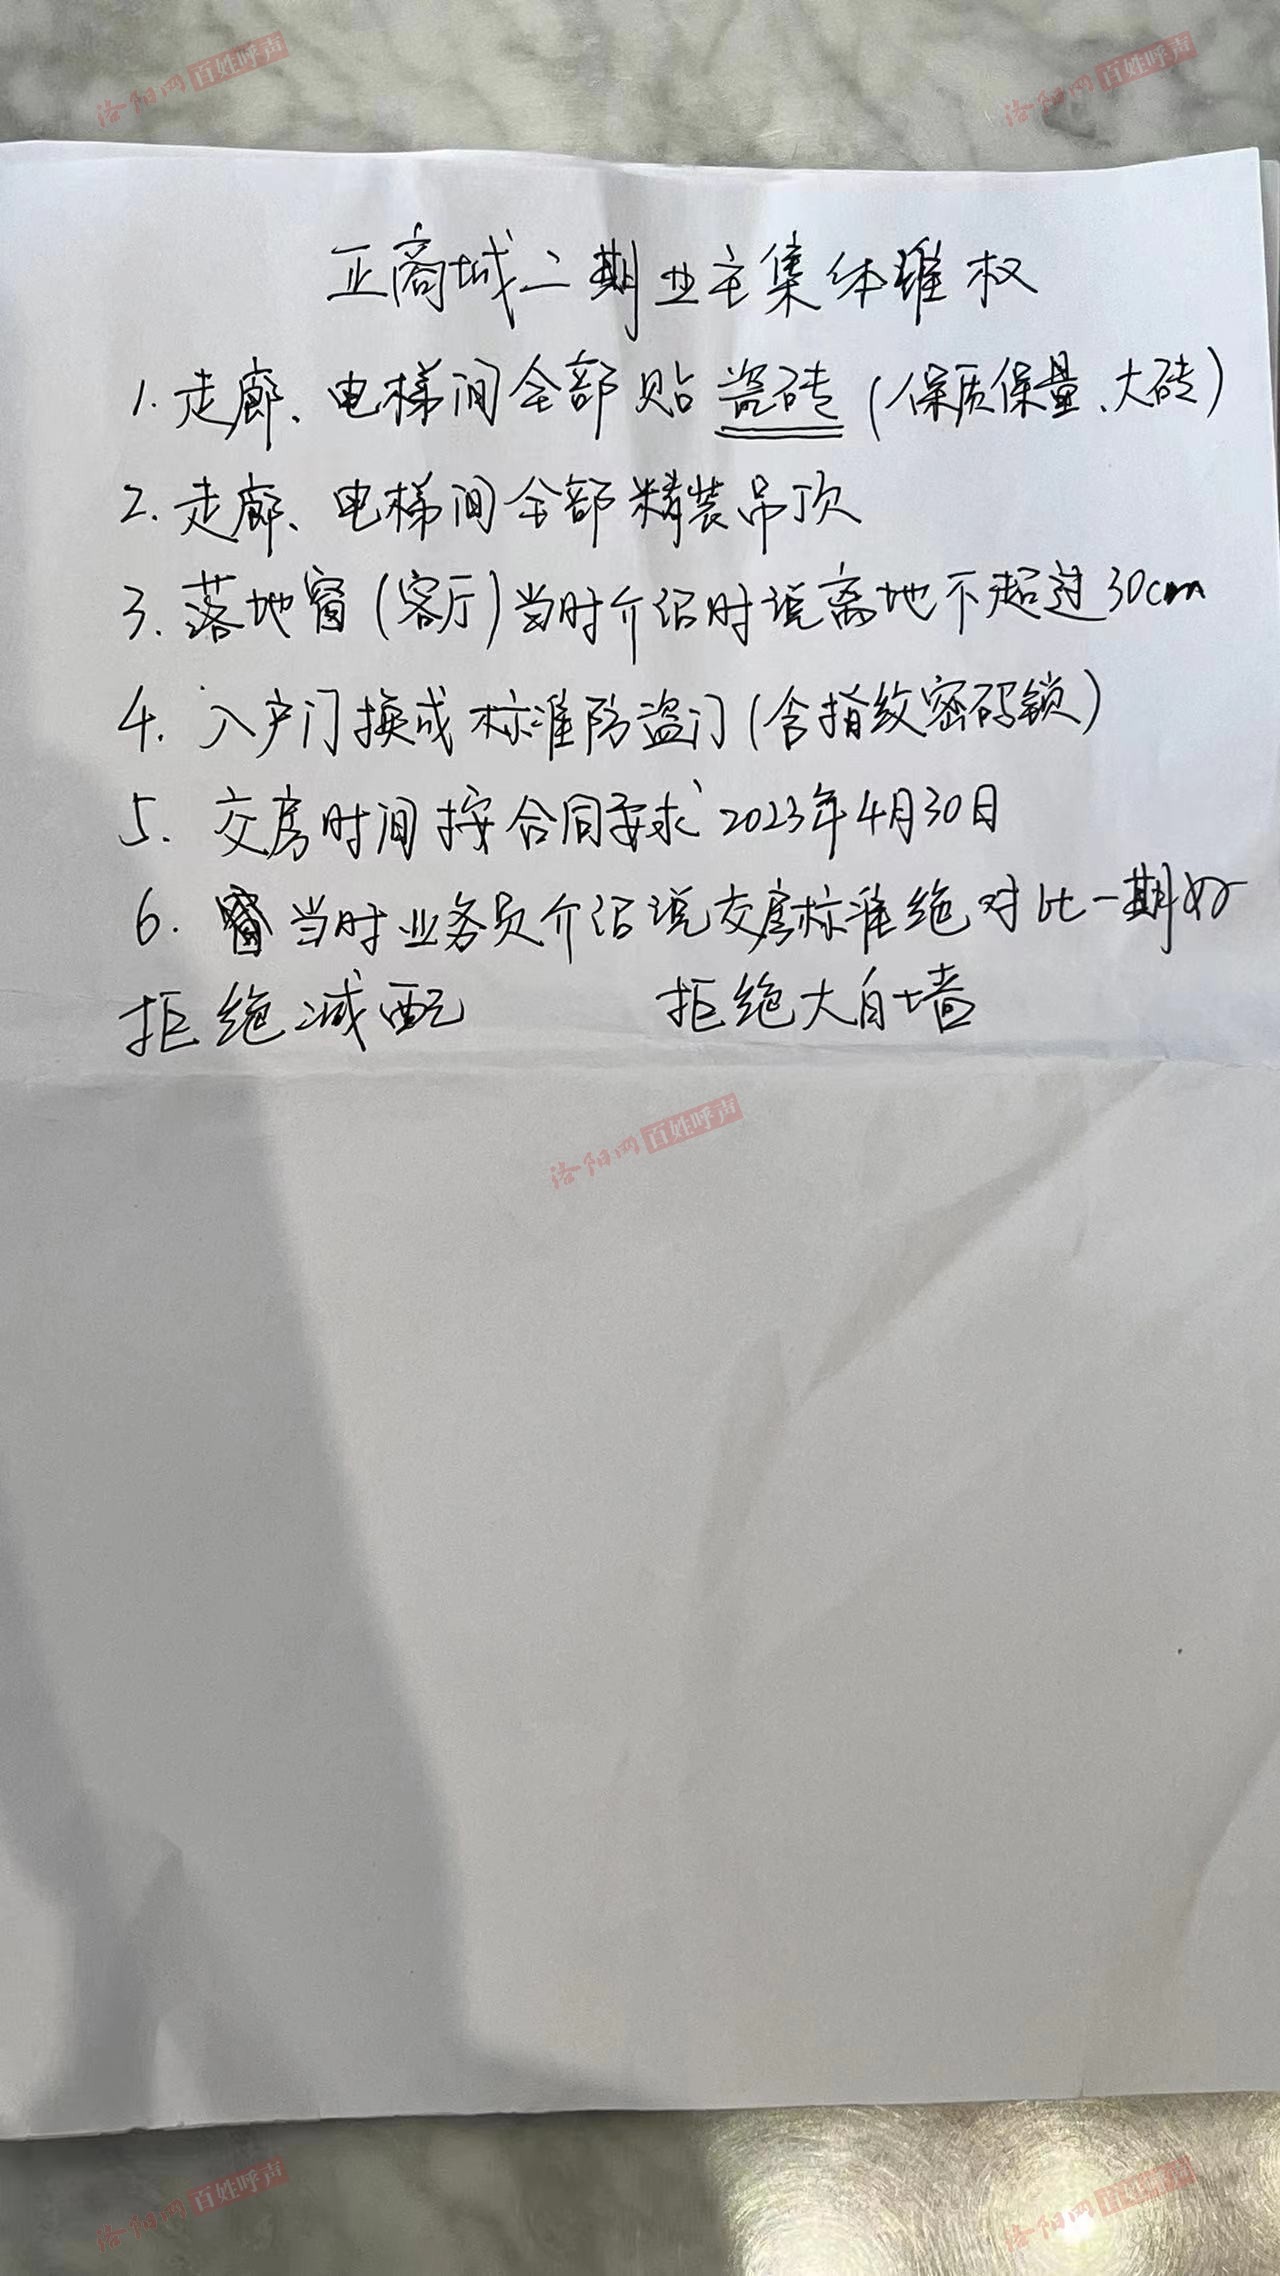 洛阳网 百姓呼声
洛阳网 百姓呼声
正商城二期业主集体维权
1. 走廊、电梯间全部贴瓷砖(保质保量、大砖)
2. 走廊、电梯间全部精装吊顶
3. 落地窗(客厅)当时介绍时说离地不超过30cm
4. 入户门换成标准防盗门(含指纹密码锁)
5. 交房时间按合同要求2023年4月30日
6. 当时业务员介绍说交房标准绝对比一期好
拒绝减配 拒绝大白墙
洛阳网 百姓呼声
洛阳网 百姓呼声
洛阳网 百姓呼声